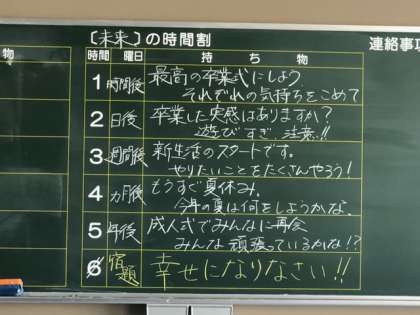 〔未来〕の時間割
連絡事項
物
時間 曜日 持ち物
1 時間後 最高の卒業式にしよう
それぞれの気持ちをこめて
2 日後 卒業した実感はありますか?
遊びすぎ注意!!
3 週間後 新生活のスタートです。
やりたいことをたくさんやろう!
4 ヵ月後 もうすぐ夏休み。
今年の夏は何をしようかな。
5 年後 成人式でみんなに再会
みんな頑張っているかな!?
6 宿題 幸せになりなさい!!